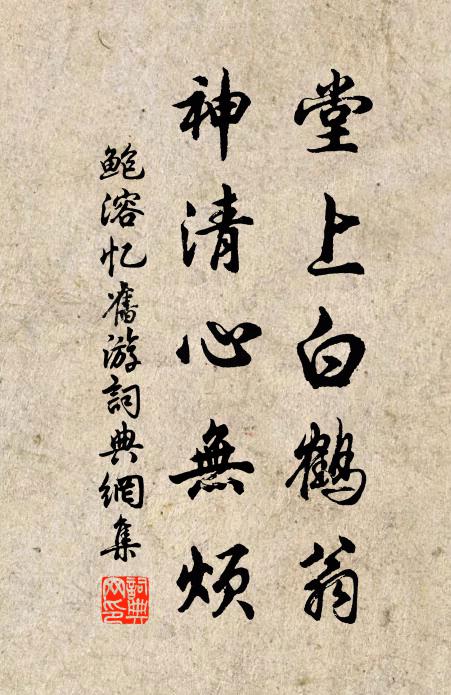 堂上白鹤翁
神清心無煩
鲍溶忆舊游詞典網集
詞典網印